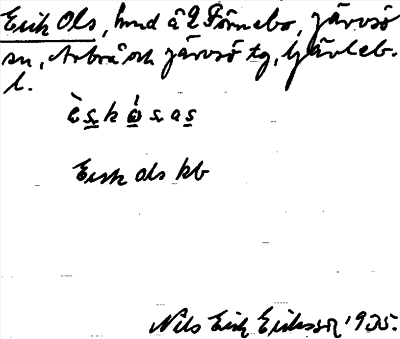 Erik Ols, hmd å 2 Förnebo, Järvsö
sn, Arbrå och Järvsö tg, Gävleb.
l.
è s̲ k ó̲ s̲ a s̲
Erik ols kb
Nils Erik Eriksson 1935.